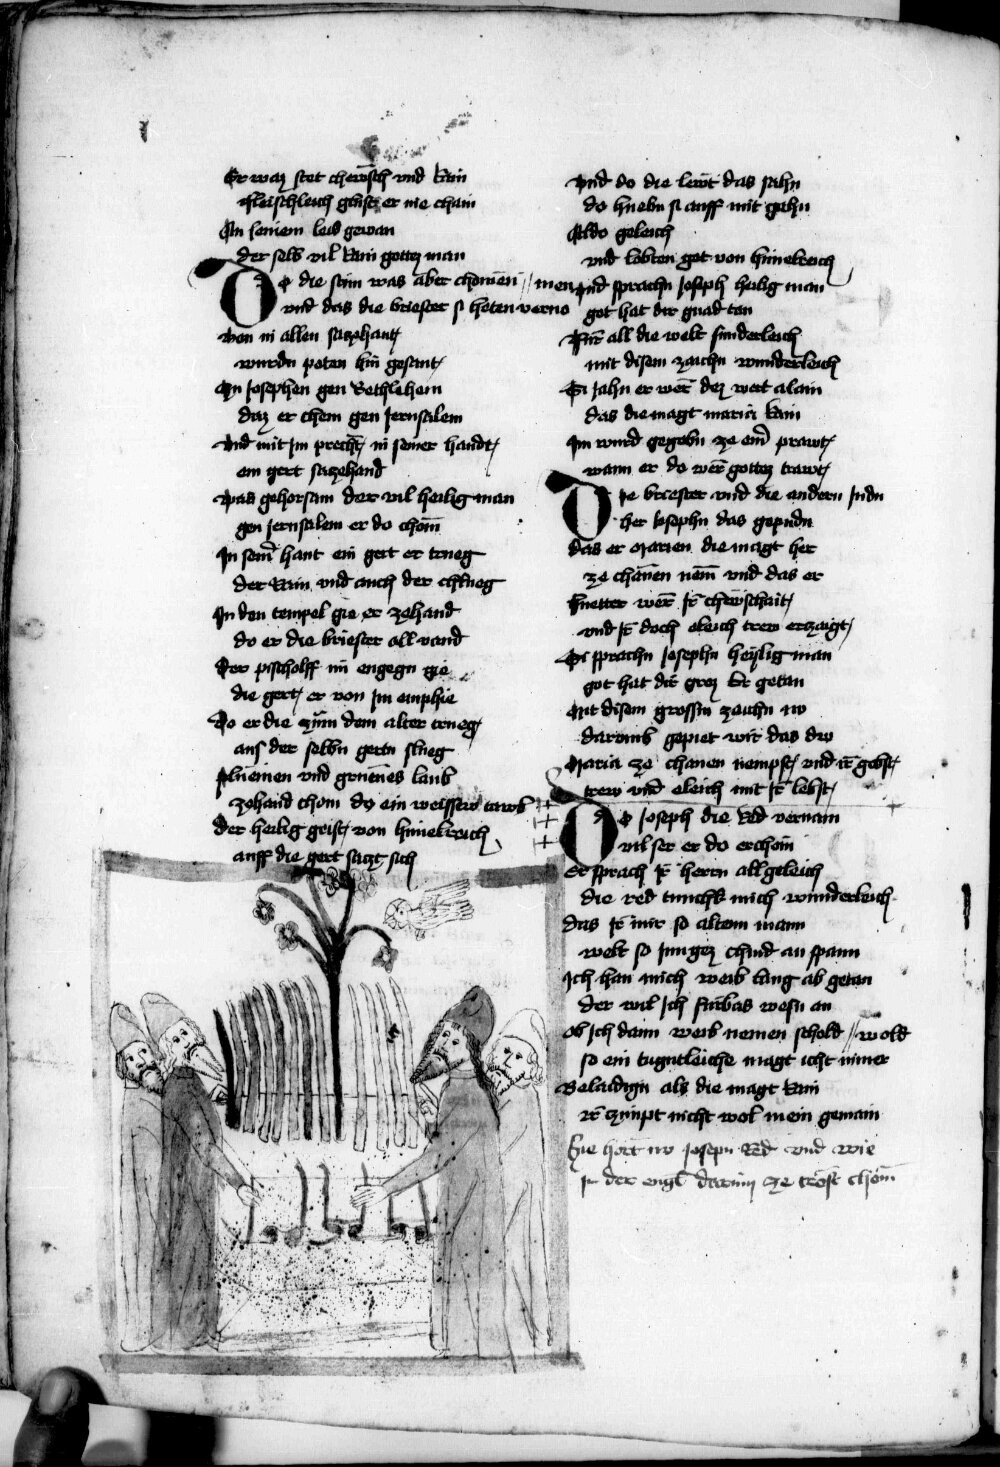 Er waz stet chewsch und rain
fleischleich glust er nie chain
In seinem leib gewan
der selb vil rain gottez man
Do die stim was aber chomen
und das die briester si heten verno // men
Von in allen sazehant
wurdn poten hin gesant
In Josephen gen Bethlehem
daz er chem gen Jerusalem
Und mit im precht in seiner handt
ein gert sazehand
Was gehorsam der vil heilig man
gen Jerusalem er do chom
In seinr hant ein gert er trueg
der rain und auch der chlueg
In den tempel gie er zehand
do er die briester all vand
Der pischolff im engegn gie
die gert er von im emphie
Do er die zum dem alter trueg
aus der selbn gertn slueg
Plüemen und grüenes laub
zehand chom do ein weissew tawb
Der heilig geist von himelreich
auff die gert saczt sich
Und do die lewt das sahn
do huebn si auff mit gahn
Alldo geleich
und lobten got von himelreich
Und sprachn Joseph heilig man
got hat dir gnad tan
Für all die welt sunderleich
mit disem zaichn wunderleich
Si jahn er wer dez wert alain
das die magt maria rain
Im wurd gegebn ze einr prawt
wann er do wer gottez trawt
Die briester und die andern Judn
her Josephn das gepudn
das er Marien die magt her
ze chanen nem und das er
huetter wer Ir chewschait
und Ir doch eleich trew erzaigt
Si sprachn Josephn heylig man
got hat dir groz Er getan
Mit disem grossm zaichn nw
darumb gepiet wir das dw
Maria ze chanen nempst und ir gebst
trew und eleich mit Ir lebst
Do Joseph die Red vernam
vil ser er do erchom
Er sprach Ir herrn all geleich
die red tunckt mich wunderleich
das Ir mir so altem mann
welt so Jungez chind an spann
Ich han mich weib lang ab getan
der wil Ich fürbas wesn an
Ob Ich dann weib nemen schold // wold
so ein tugntleiche magt icht nimer
Belaidign als die magt rain
Ir czimpt nicht wol mein gemain
Hie hort nw Josephn Red und wie
Ir der engl darinn ze trost chom